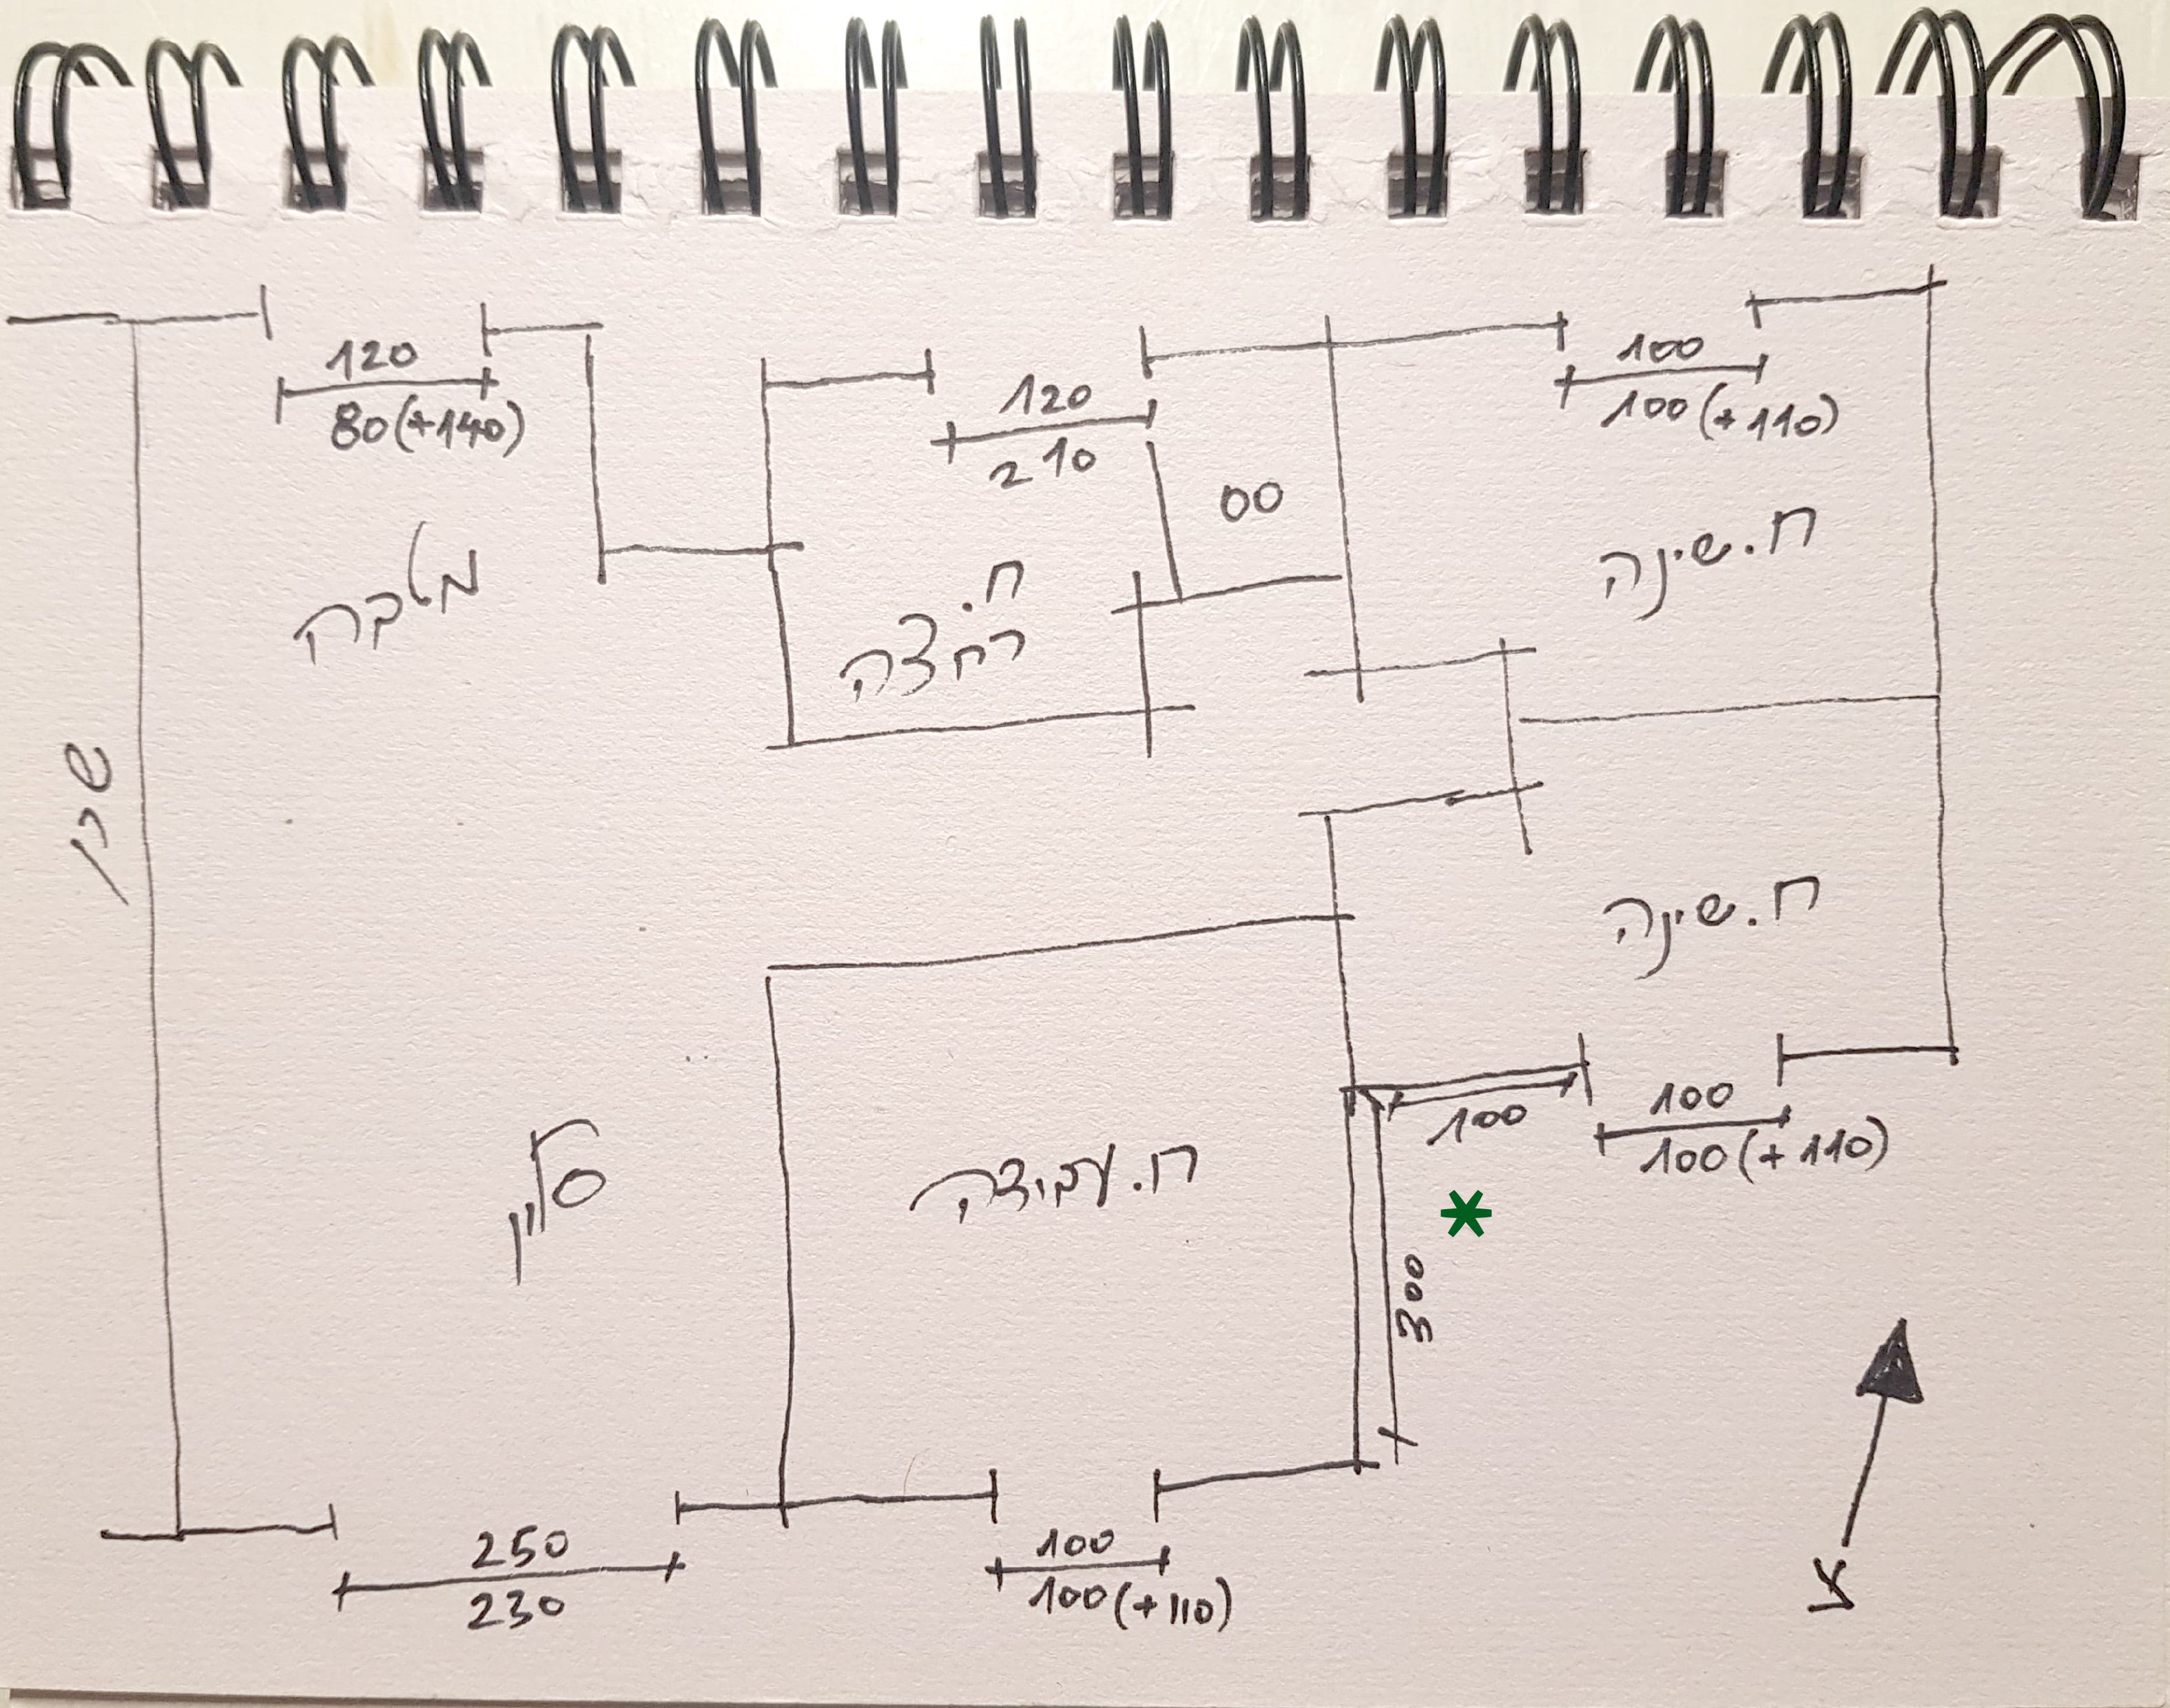 120
80(+140)
120
210
00
100
100(+110)
מטבח
ח.
רחצה
ח.שינה
שכן
ח.שינה
סלון
ח.עבודה
100
100
100(+110)
300
250
230
100
100(+110)
צ